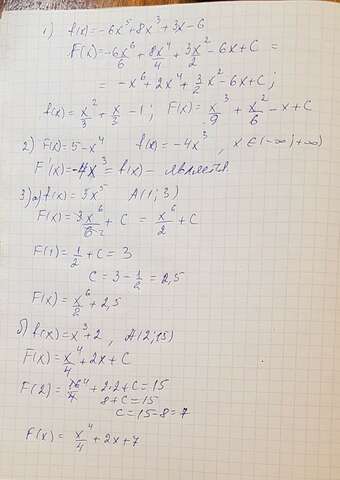 1) f(x)=-6x⁵+8x³+3x-6
F(x)=-6x⁶/6+8x⁴/4+3x²/2-6x+C =
= -x⁶+2x⁴+3/2x²-6x+C;
f(x)=x²/3+x/3-1; F(x)=x³/9+x²/6-x+C
2) F(x)=5-x⁴ f(x)=-4x³, x∈(-∞;+∞)
F'(x)=-4x³=f(x)- является.
3) а) f(x)=3x⁵ A(1;3)
F(x)=3x⁶/6+C=x⁶/2+C
F(1)=1/2+C=3
C=3-1/2=2,5
F(x)=x⁶/2+2,5
б) f(x)=x³+2, A(2;15)
F(x)=x⁴/4+2x+C
F(2)=16/4+2·2+C=15
8+C=15
C=15-8=7
F(x)=x⁴/4+2x+7